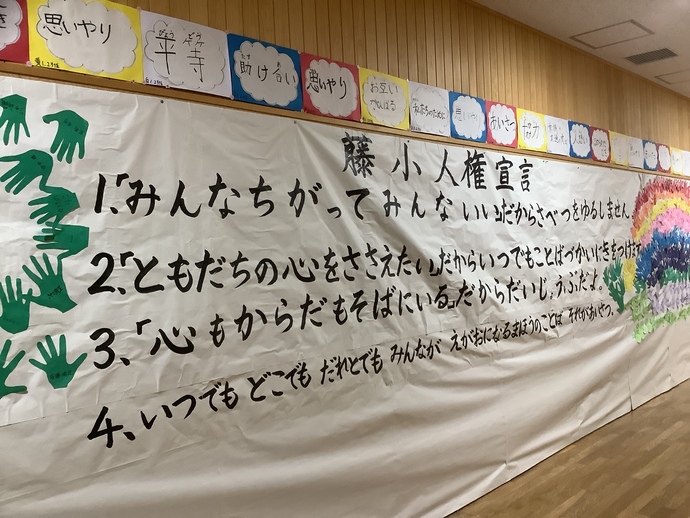 思いやり
びょうどう
平等
たす あ
助け合い
思いやり
お互い
がんばる
私たちのために
思いやり
あいさつ
協力
藤小人権宣言
1、「みんなちがってみんないい」だからさべつをゆるしません。
2、「ともだちの心をささえたい」だからいつでもことばづかいにきをつけます
3、「心もからだもそばにいる」だからだいじょうぶだよ。
4、いつでも どこでも だれとでも みんなが えがおになるまほうのことば それがあいさつ。